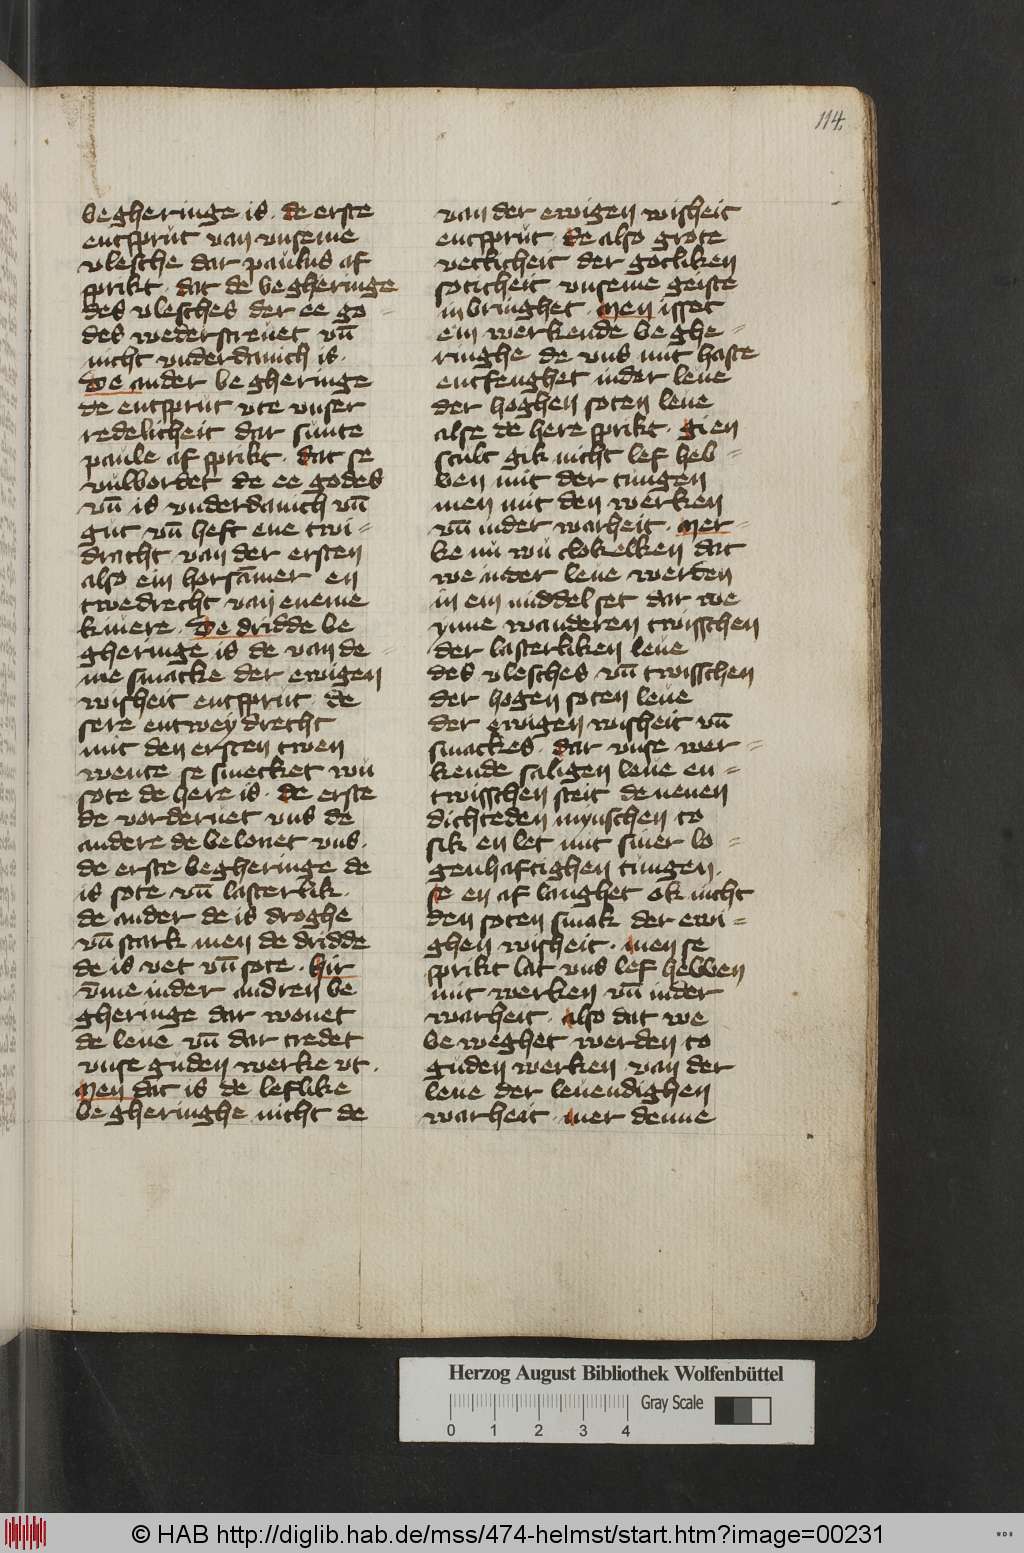 114.
begheringe is. de erste
entsprut van vnseme
vlesche dar paulus af
sprikt. dat de begheringe
des vlesches der ee go-
des wederstreuet vn̄
nicht vnderdanich is.
De ander be gheringe
de entsprut vte vnser
redelicheit dar sunte
paule af sprikt. dat se
vulbordet de ee godes
vn̄ is vnderdanich vn̄
gut vn̄ heft ene twi=
dracht van der ersten
also ein horsāmer en
twedrecht van eneme
kiuere. De dridde be
gheringe is de van de=
me smacke der ewigen
wisheit entsprut. de
sere entwey drecht
mit den ersten twen
wente se smecket wu
sote de here is. de erste
de vorderuet vns de
andere de belonet vns.
de erste begheringe de
is sote vn̄ lasterlik.
de ander de is droghe
vn̄ stark men de dridde
de is vet vn̄ sote. hir
v̄me inder andren be
gheringe dar wonet
de leue vn̄ dar tredet
vnse guden werke vt.
Men dat is de leflike
begheringhe nicht de
van der ewigen wisheit
entsprut. de also grote
vetticheit der gotliken
soticheit vnseme geiste
inbringhet. Men isset
ein werkende beghe=
ringhe de vns mit haste
entfenghet inder leue
der hoghen soten leue
alse de here sprikt. gi en
scult gik nicht lef heb=
ben mit der tungen
men mit den werken
vn̄ inder warheit. Mer=
ke nu wu clokelken dat
we inder leue werden
in ein middel set dar we
ynne wanderen twisschen
der lasterliken leue
des vlesches vn̄ twisschen
der hogen soten leue
der ewigen wisheit vn̄
smackes. dar vnse wer=
kende saligen leue en=
twisschen steit de neuen
dichteden mynschen to
sik en let mit siner lo=
genhaftighen tungen.
se en af langhet ok nicht
den soten smak der ewi=
ghen wisheit. men se
sprikt lat vns lef hebben
mit werken vn̄ inder
warheit. also dat we
be weghet werden to
guden werken van der
leue der leuendighen
warheit. mer denne
Herzog August Bibliothek Wolfenbüttel
Gray Scale
0 1 2 3 4
© HAB http://diglib.hab.de/mss/474-helmst/start.htm?image=00231